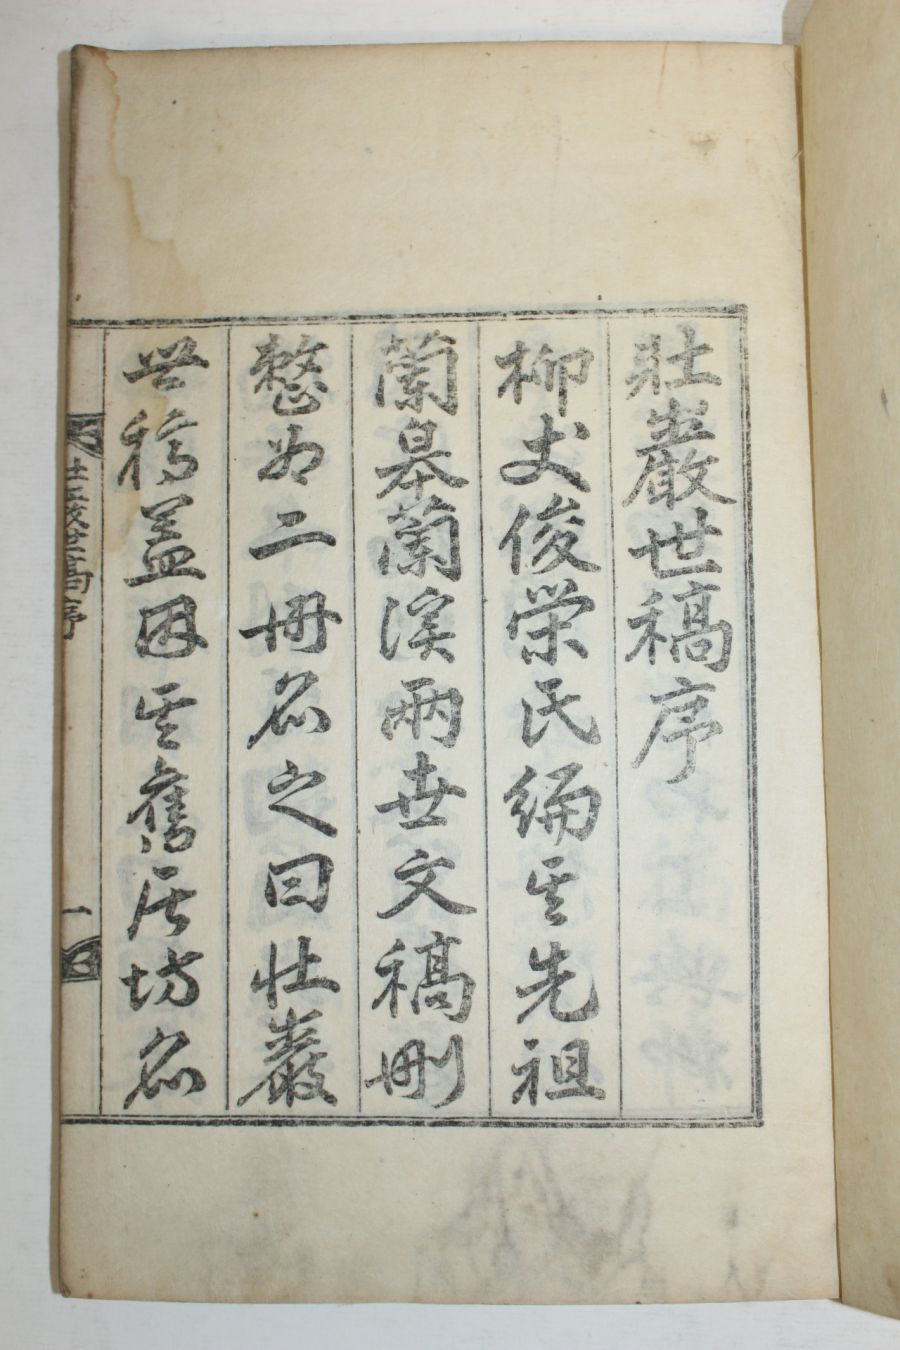 壯巖世稿序
柳丈俊荣氏編其先祖
蘭皋蘭溪兩世文稿刪
整为二冊名之曰壯巖
世稿盖因其舊居坊名
壯巖世稿序
一